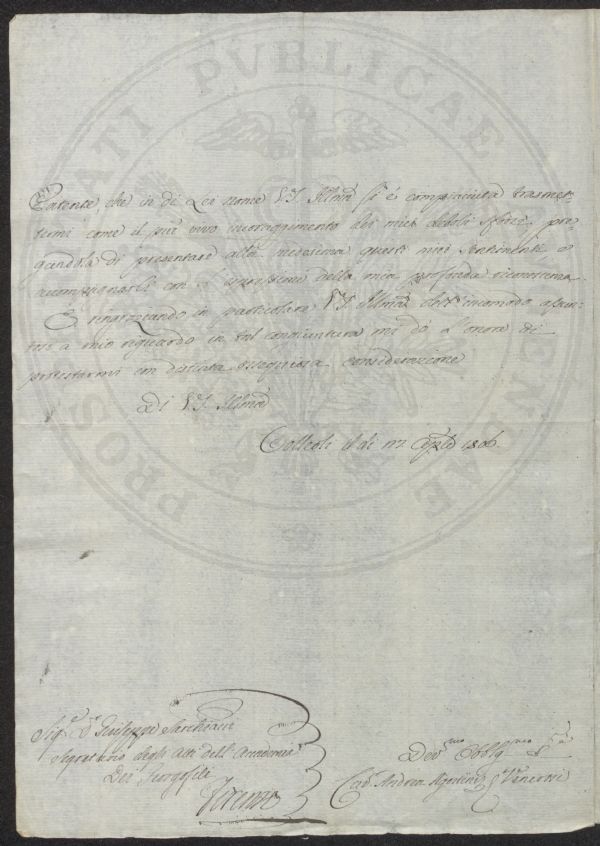 PROSPERITATI PVBLICAE AVGENDAE
Patente, che in di Lei nome V.S. Illma si è compiaciuta trasmet-
termi come il più vivo incoraggimento dei miei deboli sforzi, pre-
gandola di presentare alla medesima questi miei sentimenti e
accompagnarli con espressione della mia profonda riconoscenza.
E ringraziando in particolare V.S. Illma dell'incomodo assun-
tosi a mio riguardo in tal congiuntura mi dò l'onore di
protestarmi con distinta ossequiosa considerazione
Di V.S. Illma
Colleoli il dì 1806.
Sigr. Dr. Giuseppe Sarchiani
Segretario degli Atti dell'Accademia
Dei Georgofili
Firenze
Devmo Obblgmo
Cav. Andrea Agostini Venerosi